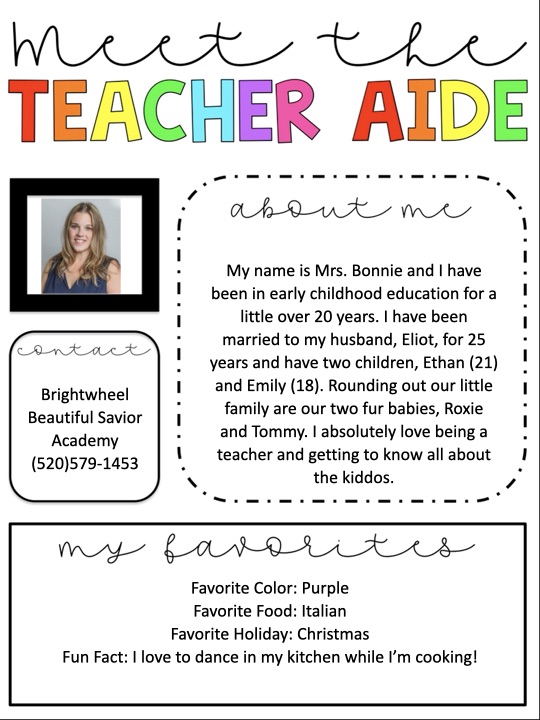 Meet the
TEACHER AIDE
about me
My name is Mrs. Bonnie and I have
been in early childhood education for a
little over 20 years. I have been
married to my husband, Eliot, for 25
years and have two children, Ethan (21)
and Emily (18). Rounding out our little
family are our two fur babies, Roxie
and Tommy. I absolutely love being a
teacher and getting to know all about
the kiddos.
contact
Brightwheel
Beautiful Savior
Academy
(520)579-1453
my favorites
Favorite Color: Purple
Favorite Food: Italian
Favorite Holiday: Christmas
Fun Fact: I love to dance in my kitchen while I’m cooking!